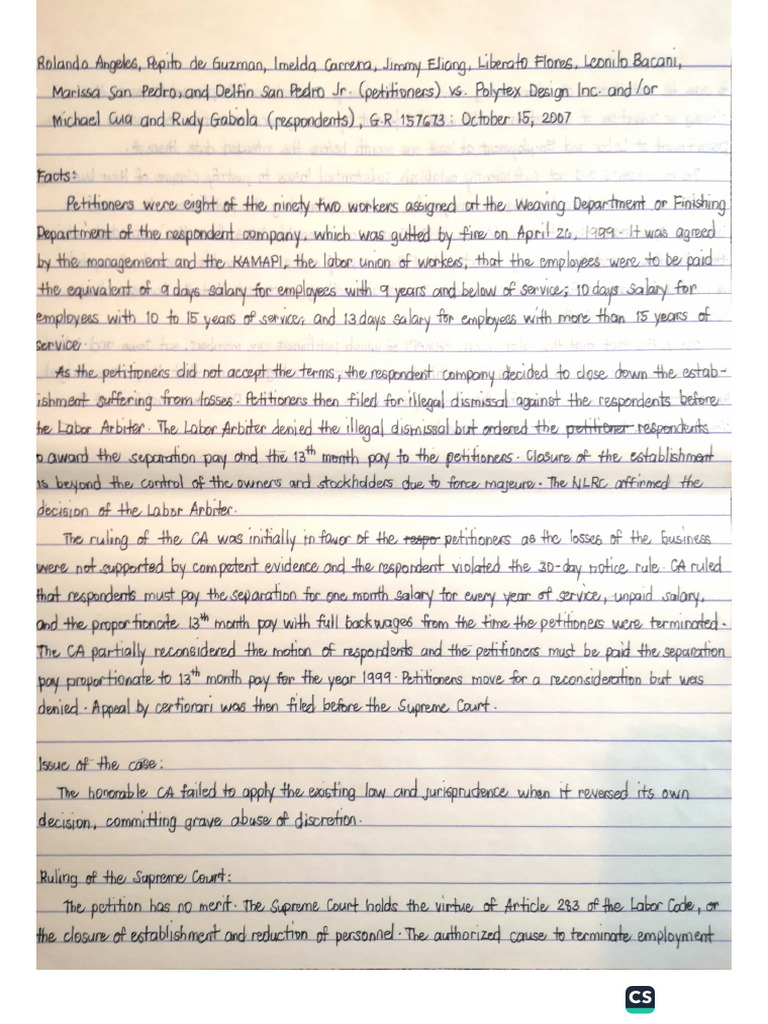 Rolando Angeles, Pepito de Guzman, Imelda Carrera, Jimmy Eliang, Liberato Flores, Leonilo Bacani,
Marissa San Pedro, and Delfin San Pedro Jr. (petitioners) vs. Polytex Design Inc. and/or
Michael Cua and Rudy Gabiola (respondents), G.R. 157673 : October 15, 2007
Facts:
Petitioners were eight of the ninety two workers assigned at the Weaving Department or Finishing
Department of the respondent company, which was gutted by fire on April 26, 1999. It was agreed
by the management and the KAMAPI, the labor union of workers, that the employees were to be paid
the equivalent of 9 days salary for employees with 9 years and below of service; 10 days salary for
employees with 10 to 15 years of service; and 13 days salary for employees with more than 15 years of
service.
As the petitioners did not accept the terms, the respondent company decided to close down the estab-
ishment suffering from losses. Petitioners then filed for illegal dismissal against the respondents before
he Labor Arbiter. The Labor Arbiter denied the illegal dismissal but ordered the petitioner respondents
o award the separation pay and the 13th month pay to the petitioners. Closure of the establishment
is beyond the control of the owners and stockholders due to force majeure. The NLRC affirmed the
decision of the Labor Arbiter.
The ruling of the CA was initially in favor of the respo petitioners as the losses of the business
were not supported by competent evidence and the respondent violated the 30-day notice rule. CA ruled
that respondents must pay the separation for one month salary for every year of service, unpaid salary,
and the proportionate 13th month pay with full backwages from the time the petitioners were terminated.
The CA partially reconsidered the motion of respondents and the petitioners must be paid the separation
pay proportionate to 13th month pay for the year 1999. Petitioners move for a reconsideration but was
denied. Appeal by certiorari was then filed before the Supreme Court.
Issue of the case:
The honorable CA failed to apply the existing law and jurisprudence when it reversed its own
decision, committing grave abuse of discretion.
Ruling of the Supreme Court:
The petition has no merit. The Supreme Court holds the virtue of Article 283 of the Labor Code, or
the closure of establishment and reduction of personnel. The authorized cause to terminate employment
CS